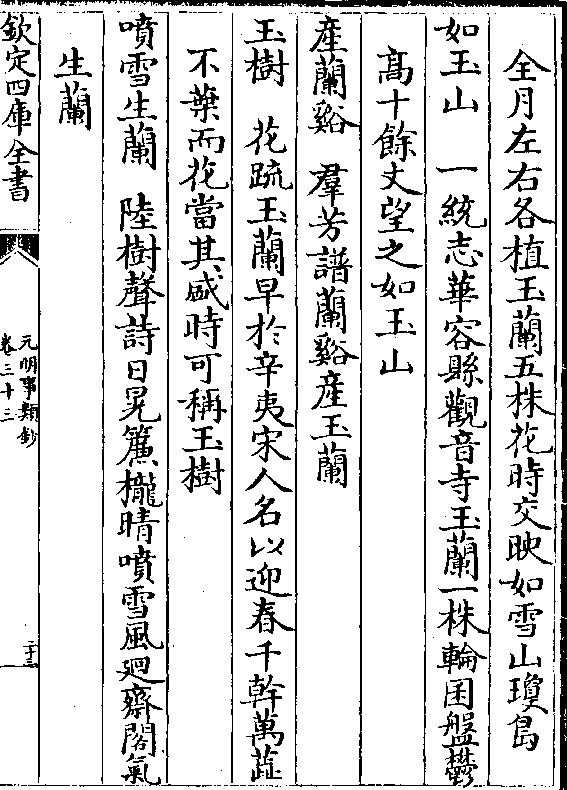 全月左右各植玉蘭五株花時交映如雪山瓊島
如玉山　一統志華容縣觀音寺玉蘭一株輪囷盤鬱
髙十餘丈望之如玉山
産蘭谿　羣芳譜蘭谿産玉蘭
玉樹　花䟽玉蘭早於辛夷宋人名以迎春千幹萬蘂
不葉而花當其盛時可稱玉樹
噴雪生蘭　陸樹聲詩日晃簾櫳晴噴雪風廻齋閣氣
生蘭
欽定四庫全書
元明事類鈔
卷三十三
二十三